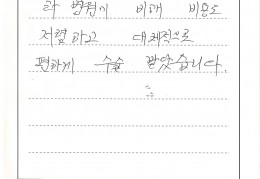 타 병원에 비해 비용도
저렴하고 대체적으로
편하게 수술 받았습니다.